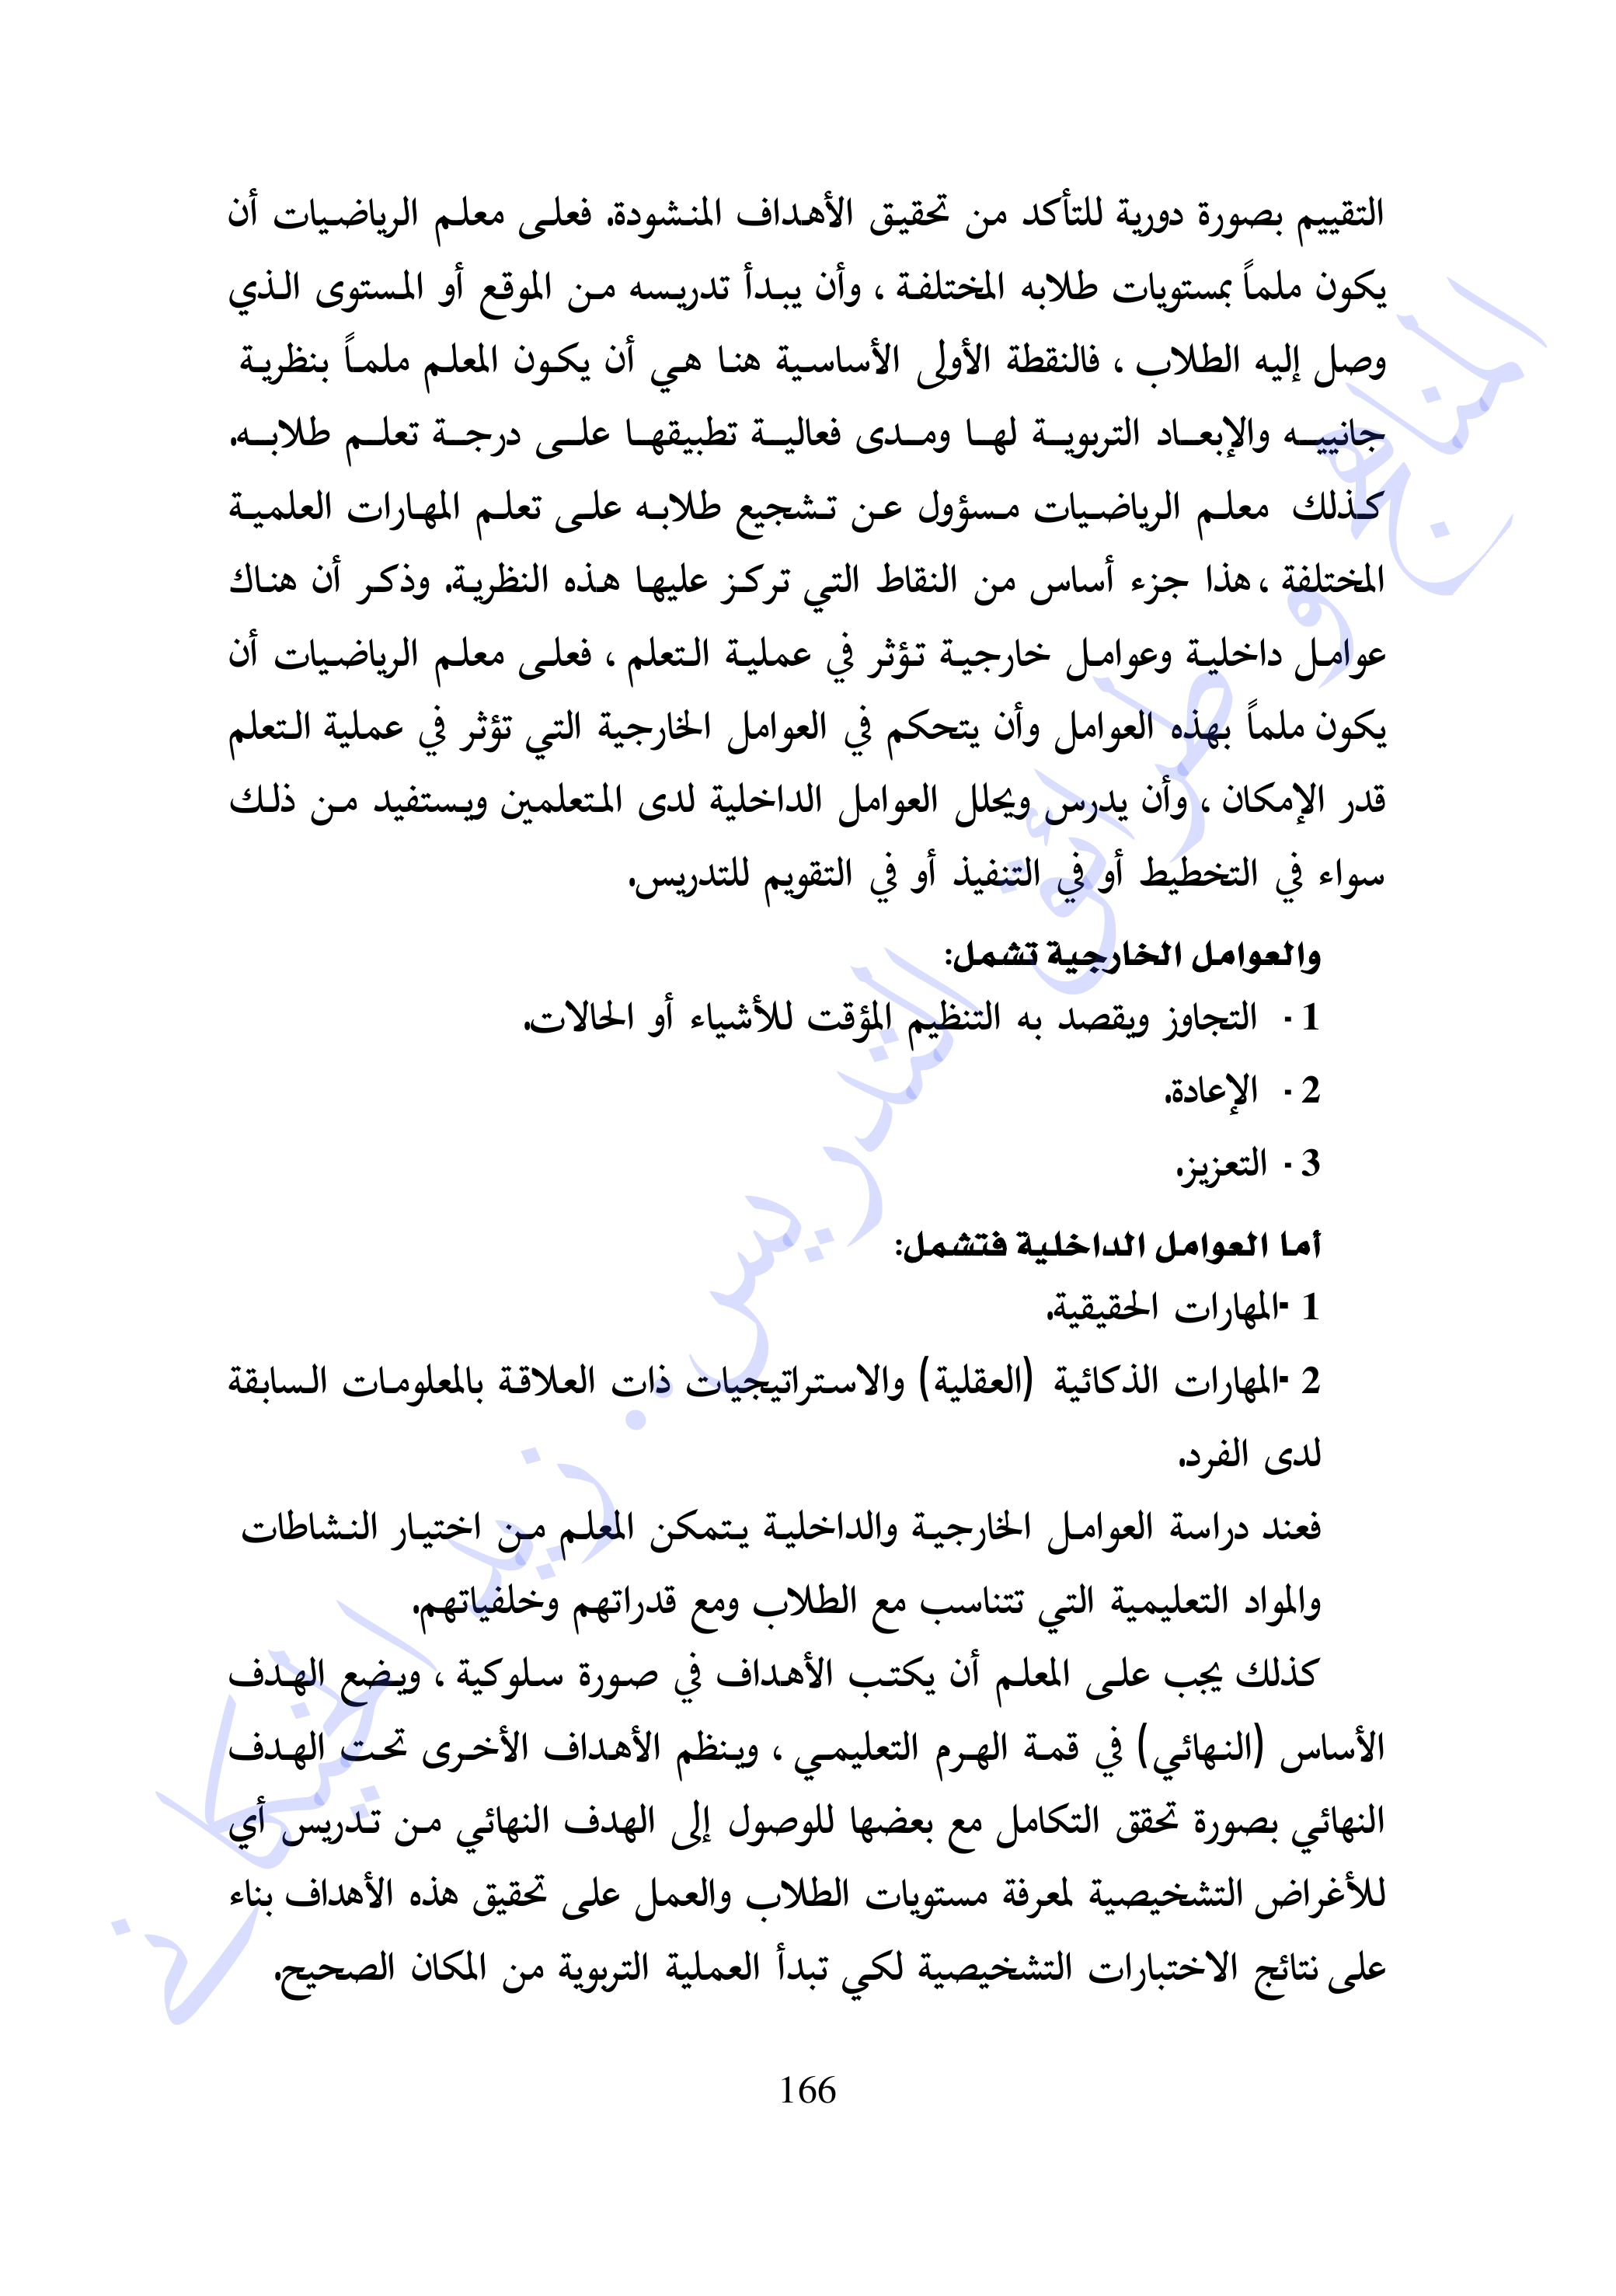 التقييم بصورة دورية للتأكد من تحقيق الأهداف المنشودة. فعلى معلم الرياضيات أن
يكون ملماً بمستويات طلابه المختلفة ، وأن يبدأ تدريسه من الموقع أو المستوى الذي
وصل إليه الطلاب ، فالنقطة الأولى الأساسية هنا هي أن يكون المعلم ملماً بنظرية
جانييه والإبعاد التربوية لها ومدى فعالية تطبيقها على درجة تعلم طلابه.
كذلك معلم الرياضيات مسؤول عن تشجيع طلابه على تعلم المهارات العلمية
المختلفة ، هذا جزء أساس من النقاط التي تركز عليها هذه النظرية. وذكر أن هناك
عوامل داخلية وعوامل خارجية تؤثر في عملية التعلم ، فعلى معلم الرياضيات أن
يكون ملماً بهذه العوامل وأن يتحكم في العوامل الخارجية التي تؤثر في عملية التعلم
قدر الإمكان ، وأن يدرس ويحلل العوامل الداخلية لدى المتعلمين ويستفيد من ذلك
سواء في التخطيط أو في التنفيذ أو في التقويم للتدريس.
والعوامل الخارجية تشمل:
1 - التجاوز ويقصد به التنظيم المؤقت للأشياء أو الحالات.
2 - الإعادة.
3 - التعزيز.
أما العوامل الداخلية فتشمل:
1 -المهارات الحقيقية.
2 -المهارات الذكائية (العقلية) والاستراتيجيات ذات العلاقة بالمعلومات السابقة
لدى الفرد.
فعند دراسة العوامل الخارجية والداخلية يتمكن المعلم من اختيار النشاطات
والمواد التعليمية التي تتناسب مع الطلاب ومع قدراتهم وخلفياتهم.
كذلك يجب على المعلم أن يكتب الأهداف في صورة سلوكية ، ويضع الهدف
الأساس (النهائي) في قمة الهرم التعليمي ، وينظم الأهداف الأخرى تحت الهدف
النهائي بصورة تحقق التكامل مع بعضها للوصول إلى الهدف النهائي من تدريس أي
للأغراض التشخيصية لمعرفة مستويات الطلاب والعمل على تحقيق هذه الأهداف بناء
على نتائج الاختبارات التشخيصية لكي تبدأ العملية التربوية من المكان الصحيح.
166
المناهج وطرائق التدريس. زيد الخيكاني